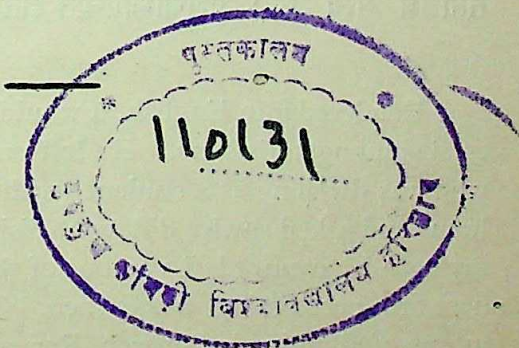 पुस्तकालय
110131
गुरुकुल काँगड़ी विश्वविद्यालय हरिद्वार